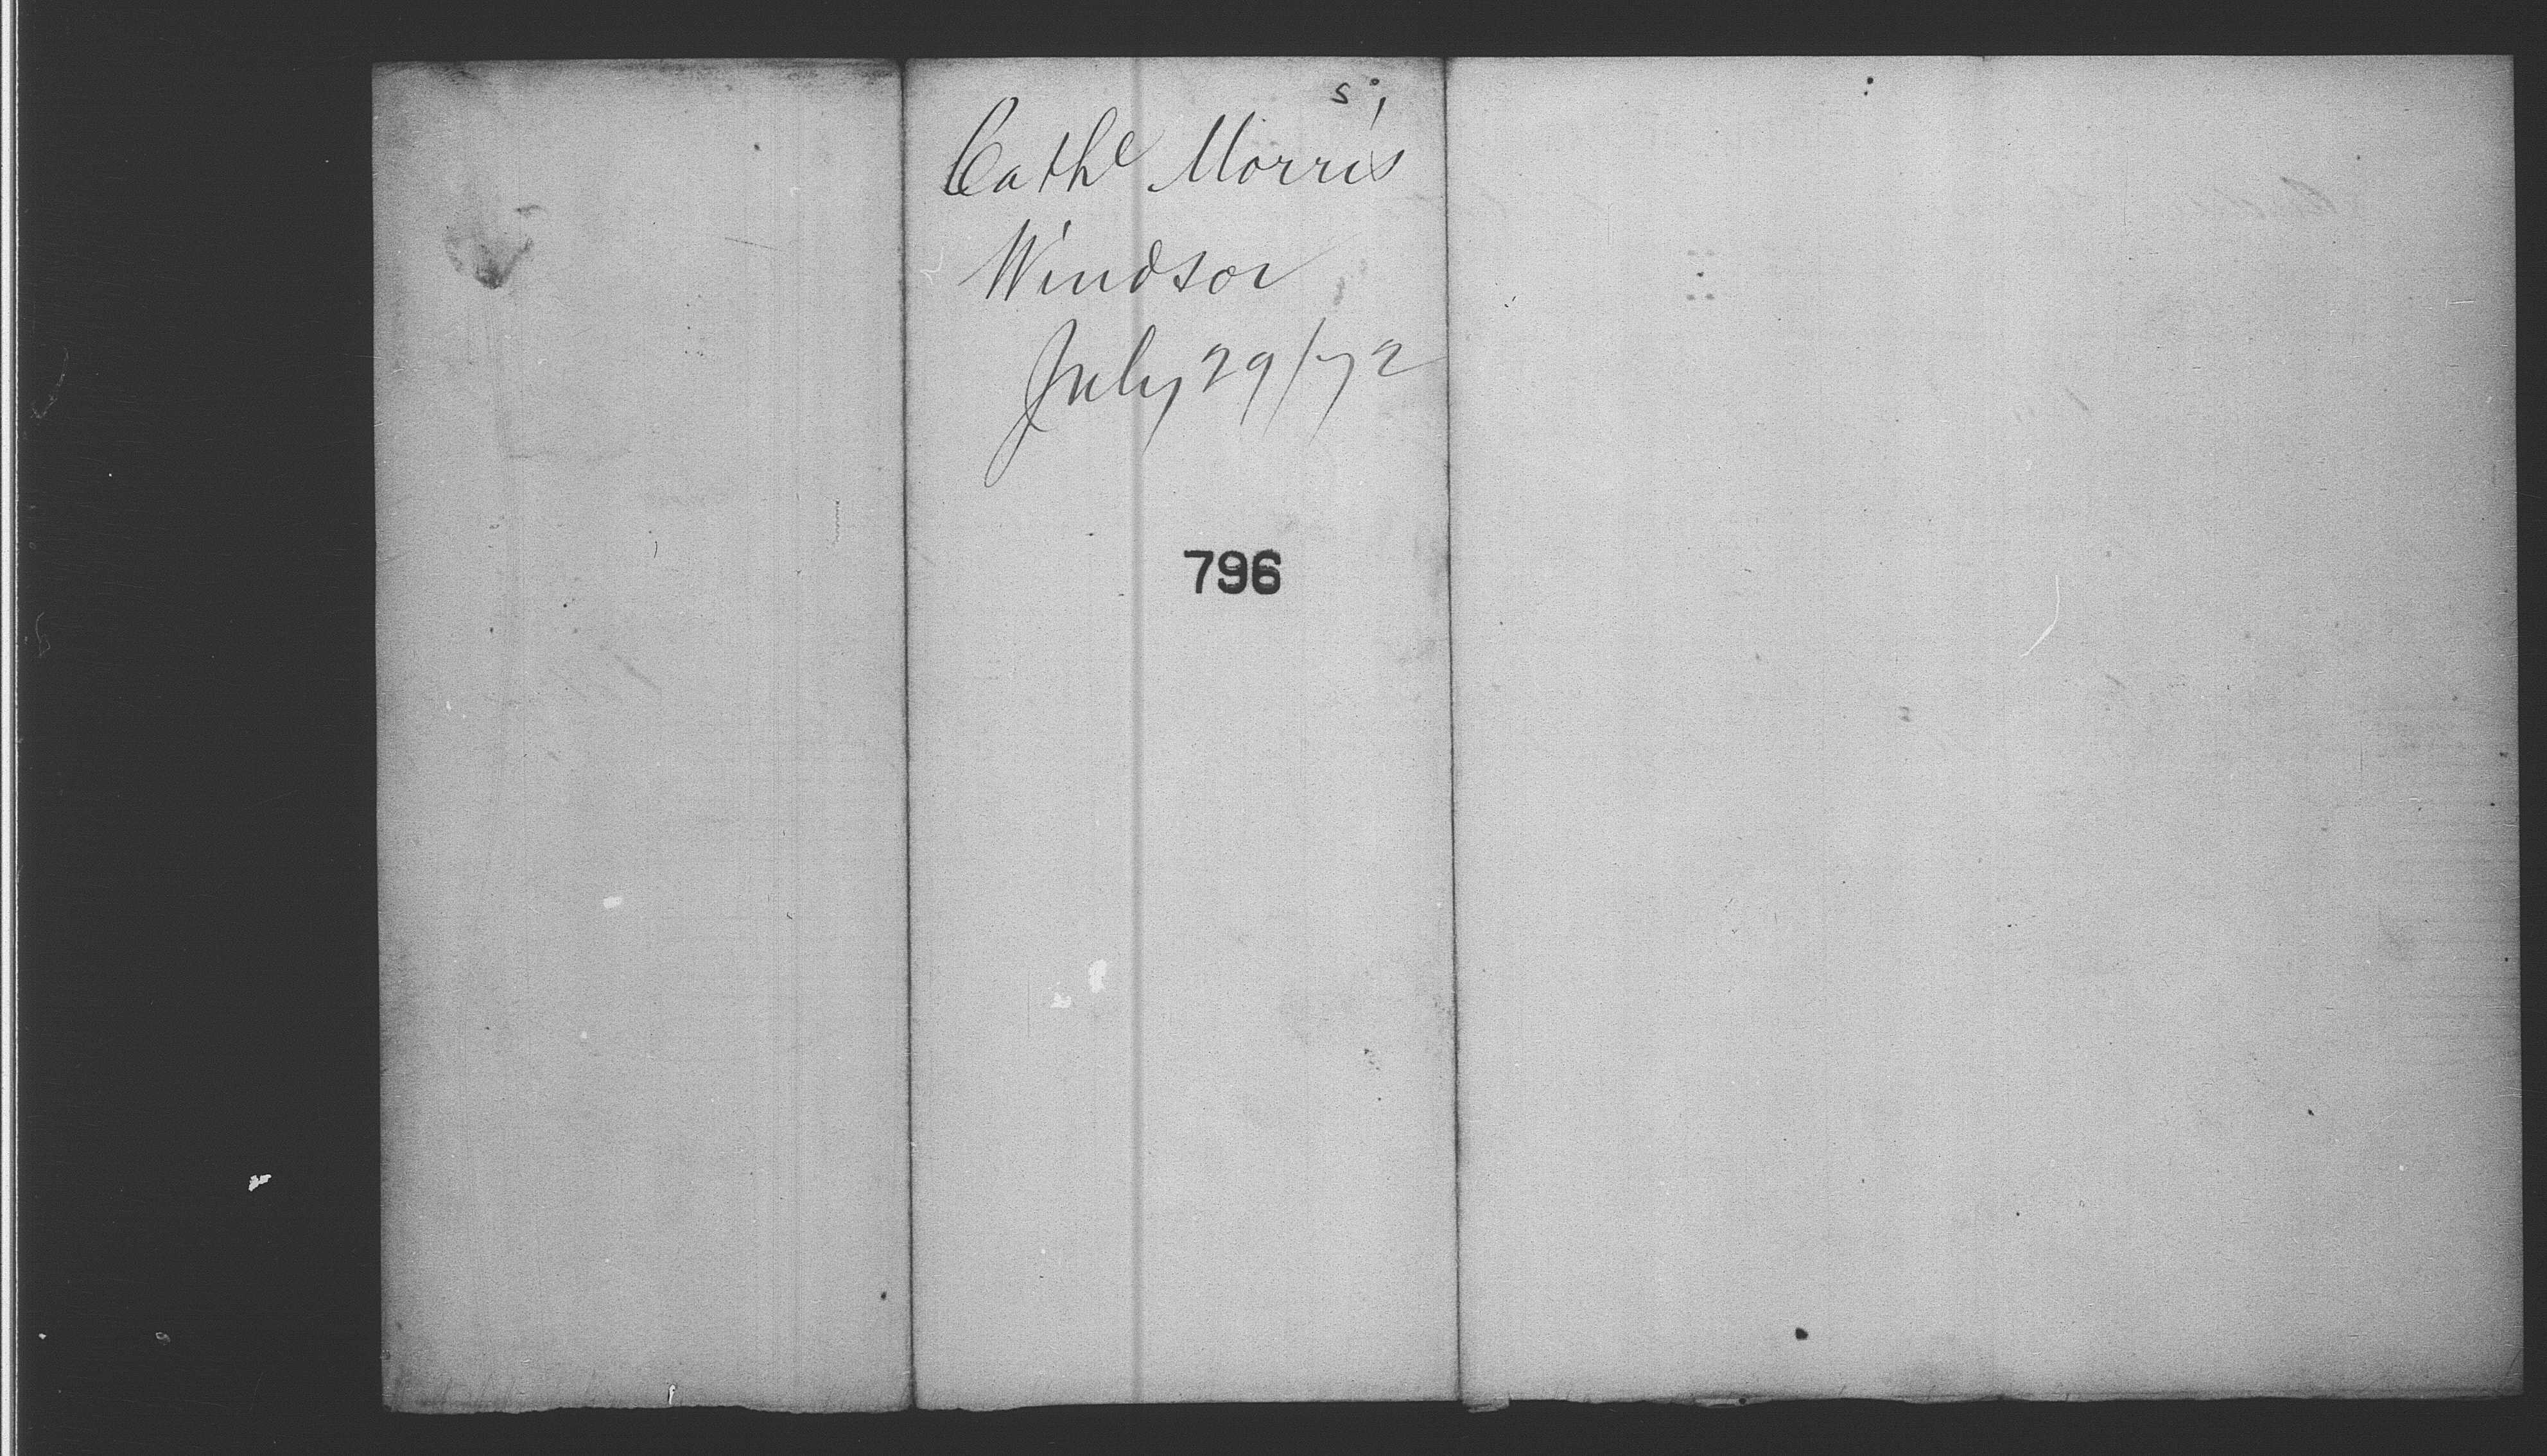 Cathe Morris
Windsor
July 29/72
796